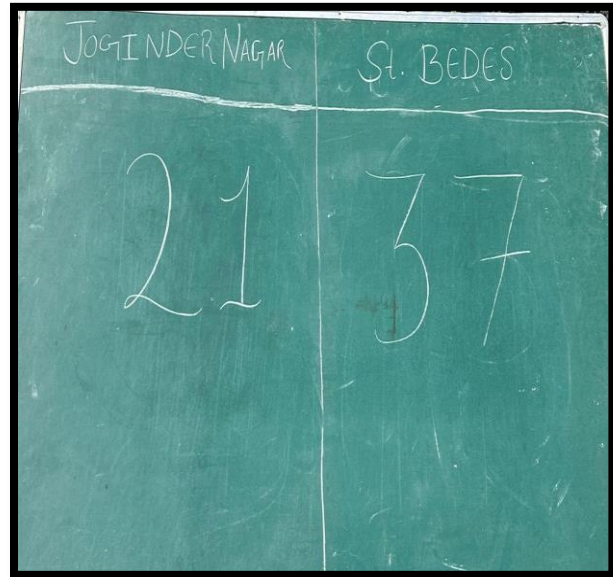 JOGINDER NAGAR St. BEDES
21 37